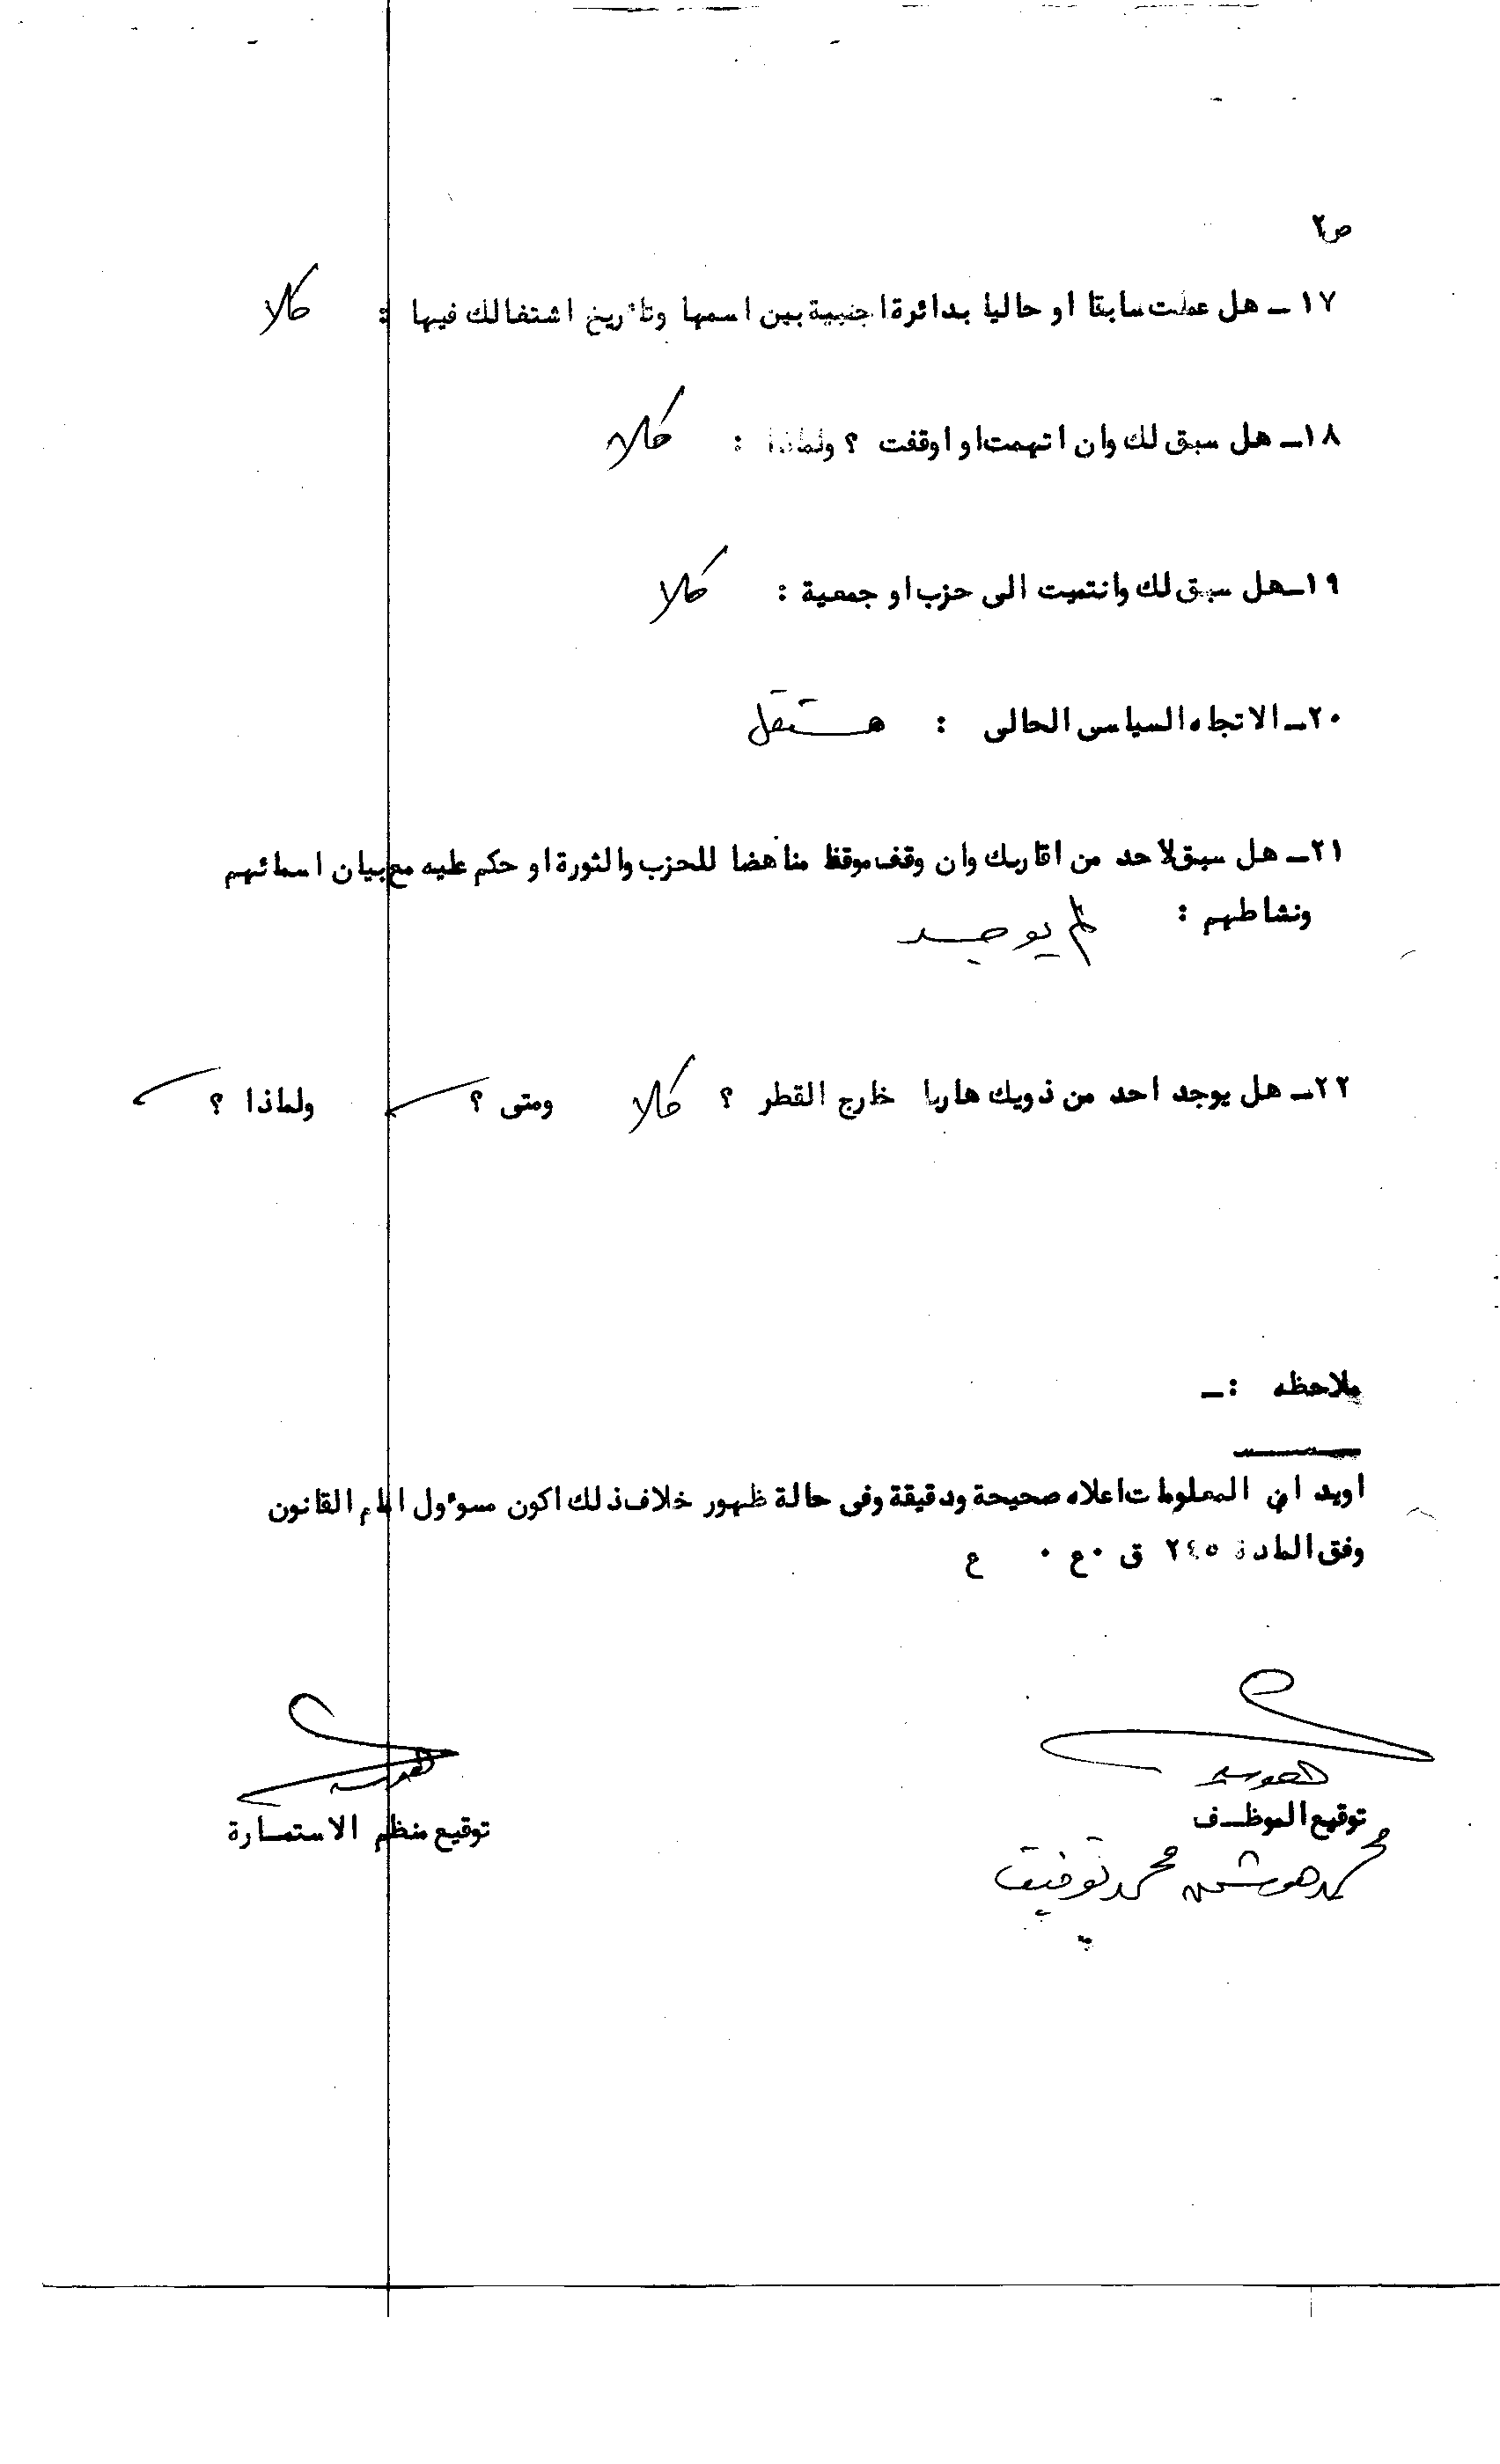 ص٢
١٧ ـ هل عملت سابقا او حاليا بدائرة اجنبية بين اسمها وتاءريخ اشتغالك فيها : كلا
١٨ـ هل سبق لك وان اتهمت او اوقفت ؟ ولماذا : كلا
١٩ـ هل سبق لك وانتميت الى حزب او جمعية : كلا
٢٠ـ الاتجاه السياسى الحالى : مستقل
٢١ـ هل سبق لاحد من اقاربك وان وقف موقفا مناهضا للحزب والثورة او حكم عليه مع بيان اسمائهم
ونشاطهم : لم يوجد
٢٢ـ هل يوجد احد من ذويك هاربا خارج القطر ؟ كلا ومتى ؟ ولماذا ؟
ملاحظه :ـ
اويد ان المعلومات اعلاه صحيحة ودقيقة وفى حالة ظهور خلاف ذلك اكون مسوءول امام القانون
وفق المادة ٢٤٥ ق ٠ع ٠ ع
توقيع الموظف
توقيع منظم الاستمارة
محمد هوشمن محمد توفيق